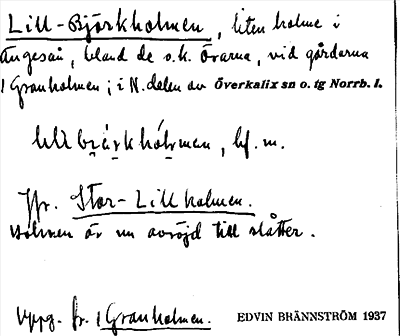 Lill-Björkholmen, liten holme i
Ängesån, bland de s.k. Övarna, vid gårdarna
i Granholmen; i N. delen av Överkalix sn o. tg Norrb. l.
bf. m.
Jfr. Stor-Lillholmen.
Holmen är nu avröjd till slåtter.
Uppg. fr. i Granholmen. EDVIN BRÄNNSTRÖM 1937